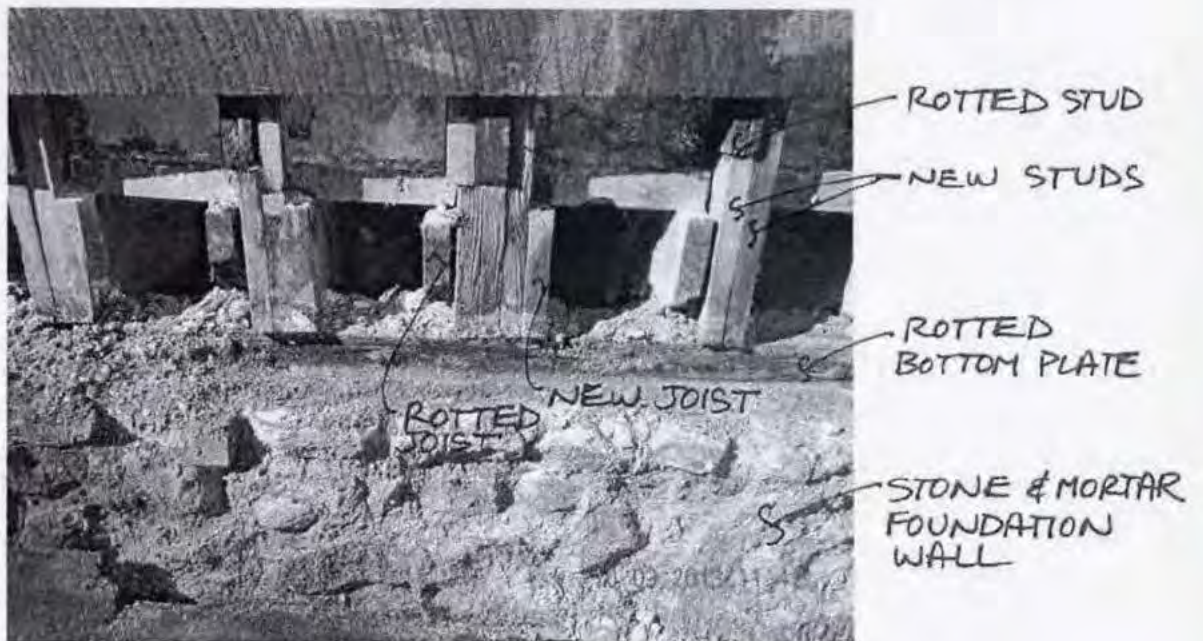 ROTTED STUD
NEW STUDS
ROTTED
BOTTOM PLATE
NEW JOIST
ROTTED
JOIST
STONE & MORTAR
FOUNDATION
WALL